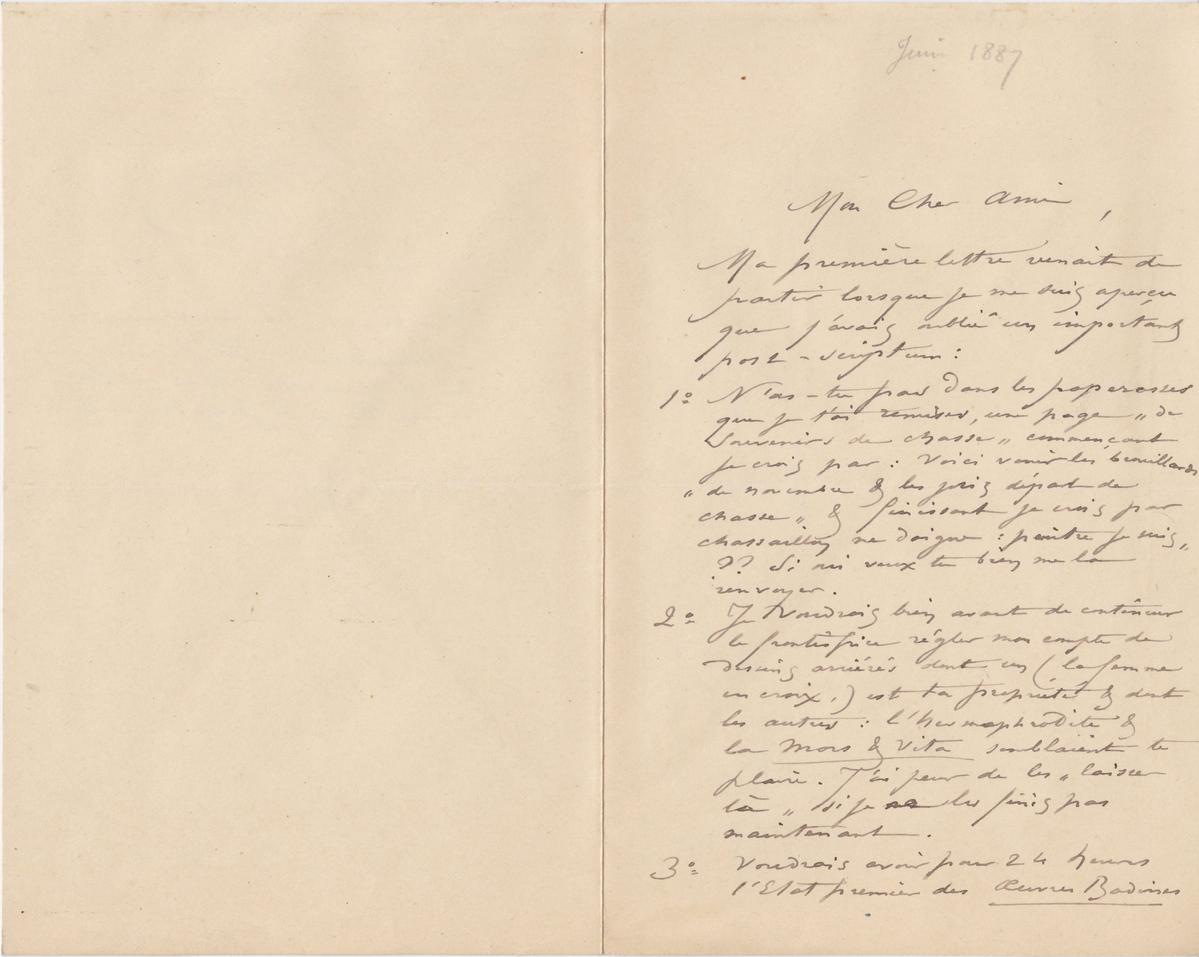 Juin 1887
Mon Cher Ami,
Ma première lettre venait de
partir lorsque je me suis aperçu
que j'avais oublié un important
post-scriptum :
1º N'as-tu pas dans les paperasses
que je t'ai remises, une page „ de
Souvenirs de chasse „ commençant
je crois par : Voici venir les brouillards
„ de novembre & les joies départ de
chasse „ & finissant je crois par
chassaillon ne daigne : peintre je suis „
?? Si oui veux tu bien me la
renvoyer.
2º Je voudrais bien avant de continuer
le frontispice régler mon compte de
dessins arriérés dont un (la femme
en croix,) est ta propriété & dont
les autres : l'hermaphrodite &
la Mors & Vita semblaient te
plaire. J'ai peur de les „ laisser
là „ si je ne les finis pas
maintenant.
3º Voudrais avoir pour 24 heures
l'Etat premier des Œuvres Badines